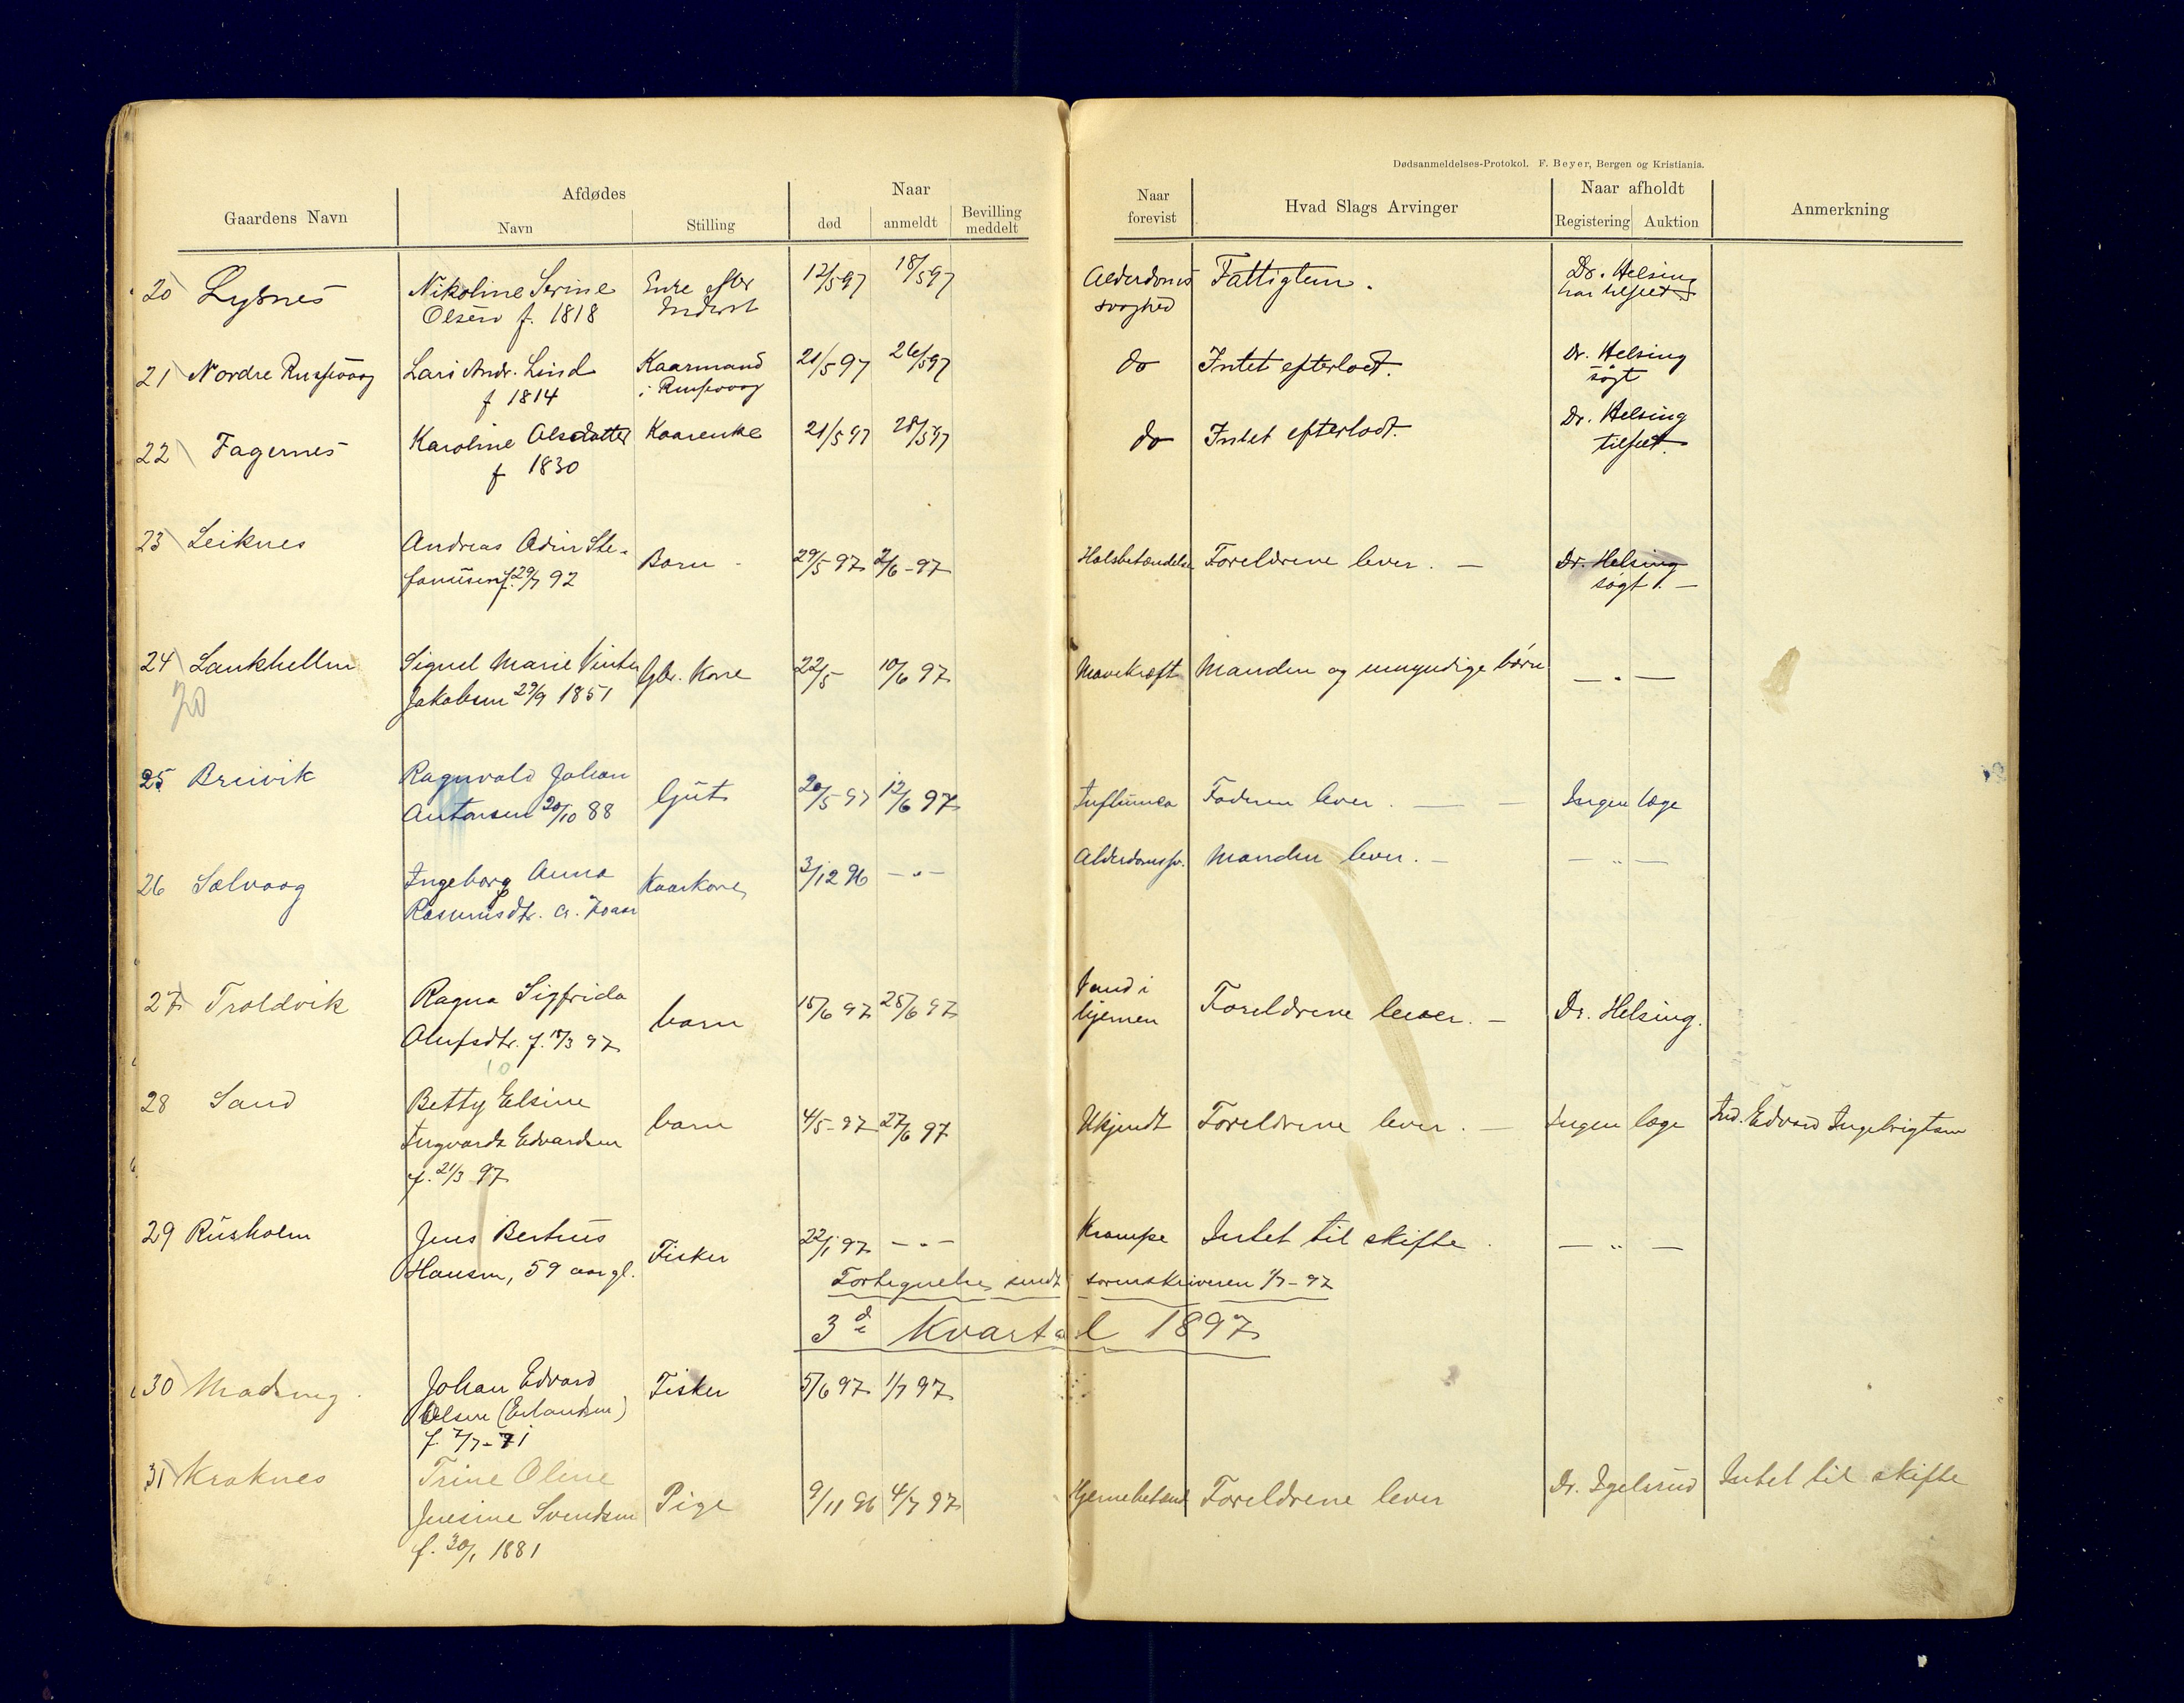 Dødsanmeldelses-Protokol. F. Beyer, Bergen og Kristiania.
Gaardens Navn
Afdødes
Navn
Stilling
Naar
død
anmeldt
Bevilling meddelt
Naar forevist
Hvad Slags Arvinger
Naar afholdt
Registering
Auktion
Anmerkning
20 Lysnes
Nikoline Serine
Olsen f. 1818
Enke efter
Inderst
12/5 97 18/5 97
Alderdoms
svaghed
Fattiglem.
Dr. Helsing
har tilseet
21 Nordre Russevaag
Lars Andr. Lind
f 1814
Kaarmand
i Russevaag
21/5 97 26/5 97
do
Intet efterladt.
Dr. Helsing
søgt
22 Fagernes
Karoline Olsdatter
f 1830
Kaarenke
21/5 97 28/5 97
do
Intet efterladt.
Dr. Helsing
tilseet.
23 Leiknes
Andreas Odin Ste-
fanusen f. 29/7 92
Barn
29/5 97 2/6-97
Halsbetændelse
Foreldrene lever. —
Dr. Helsing
søgt. —
24 Lankhellen
20
Signel Marie
Jakobsen 29/9 1851
Gbr. Kone
22/5 10/6 97
Mavekræft
Manden og umyndige børn
— " —
25 Breivik
Ragnvald Johan
Antonsen 20/10 88
Gut
20/5 97 12/6 97
Influenca
Faderen lever. — —
Ingen læge
26 Sælvaag
Ingeborg Anna
Rasmusdtr.
Kaarkone
3/12 96 — " —
Alderdomssv.
Manden lever. —
— " —
27 Troldvik
Ragna Sigfrida
Olufsdtr. f. 18/3 97
10
barn
15/6 97 25/6 97
Vand i
hjernen
Foreldrene lever. —
Dr. Helsing.
28 Sand
Betty Elsine
Ingvarda Edvardsen
f. 21/3 97
barn
4/5-97 27/6 97
Ukjendt
Foreldrene lever. —
Ingen læge
Ind. Edvard Ingebrigtsen
29 Rusholm
Jens Berthus
Hansen, 59 aar gl.
Fisker
22/1 97 — " —
Krampe
Intet til skifte.
— " —
Fortegnelse sendt sorenskriveren 1/7-97
3de Kvartal 1897
30
Johan Edvard
Olsen (Erlandsen)
f. 7/7-71
Fisker
5/6 97 1/7 97
31 Kraknes
Trine Oline
Jensine Svendsen
f. 30/1 1881
Pige
9/11 96 4/7 97
Hjernebetænd
Foreldrene lever
Dr. Igelsrud
Intet til skifte